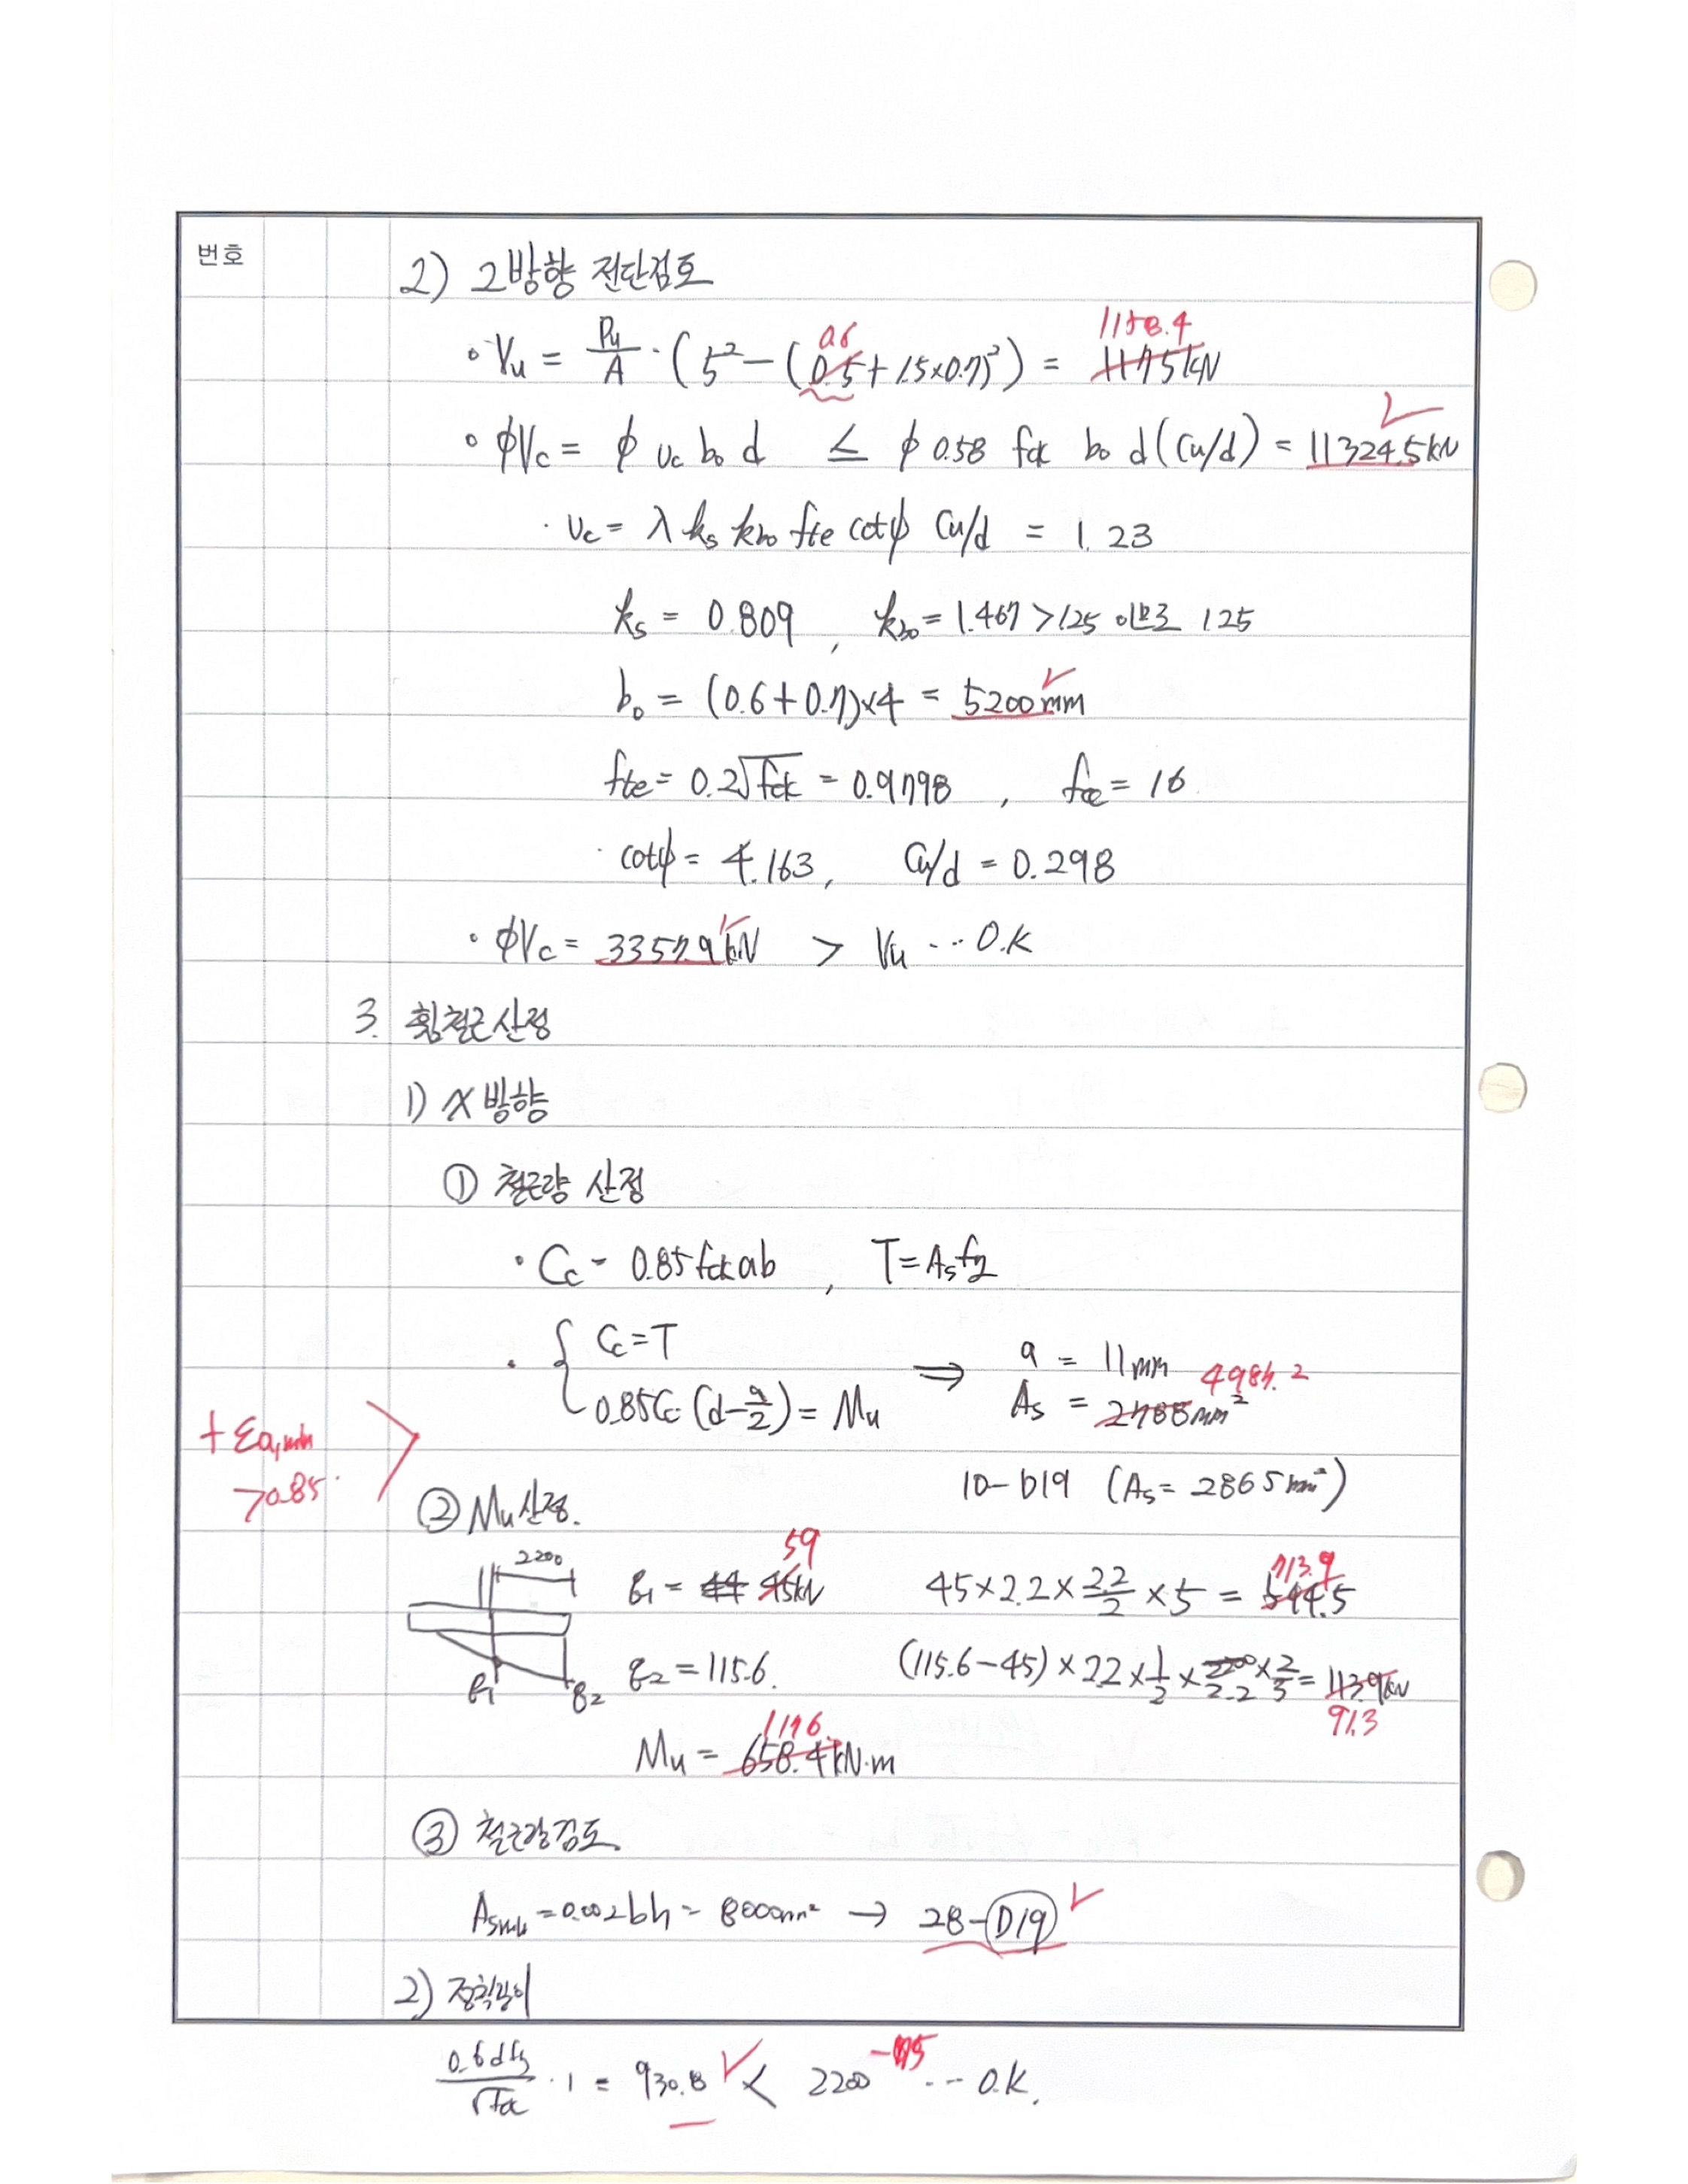 번호
2) 2방향 전단검토
1158.4
0.6
∘ Vu = Pu/A · (5² − (0.5 + 1.5×0.7)²) = 1175kN
∘ ϕVc = ϕ vc b₀ d ≤ ϕ 0.58 fck b₀ d (Cu/d) = 11324.5kN
· vc = λ ks kbo fte cotψ Cu/d = 1.23
ks = 0.809 , kbo = 1.467 > 1.25 이므로 1.25
b₀ = (0.6 + 0.7)×4 = 5200mm
fte = 0.2√fck = 0.9798 , fcc = 16
· cotψ = 4.163, Cu/d = 0.298
∘ ϕVc = 3357.9kN > Vu ··· O.K
3. 휨철근산정
1) X방향
① 철근량 산정
· Cc = 0.85fck ab , T = As fy
Cc = T ⇒ a = 11mm
4984.2
0.85Cc (d − a/2) = Mu As = 2788mm²
+ εa,min
> 0.85
10 − D19 (As = 2865mm²)
② Mu산정.
2200
59
q₁ = 44 45kN
713.9
45×2.2×2.2/2×5 = 544.5
q₁ q₂
q₂ = 115.6.
(115.6−45)×2.2×1/2×2200 2.2×2/3 = 113.9kN
91.3
1176.
Mu = 658.4kN·m
③ 철근량검토
Asmin = 0.002bh = 8000mm² → 28−D19
2) 정착길이
0.6dfy/√fck · 1 = 930.8 < 2200 −75 ··· O.K.